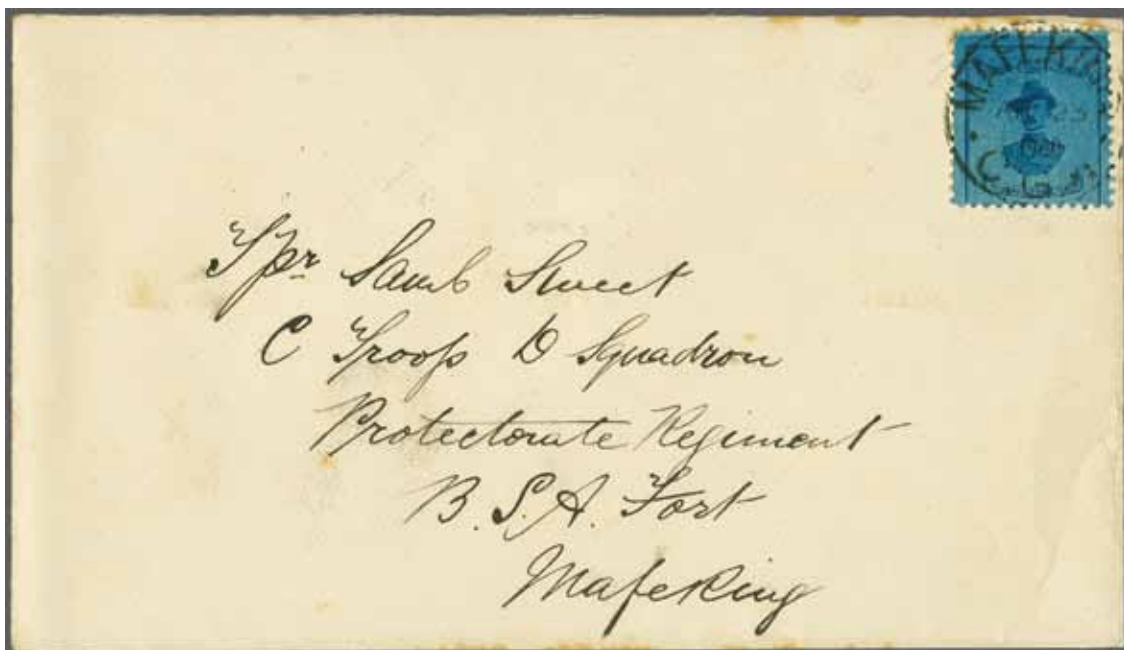 MAFEKING
23
1900
C.G.H
Tpr Saml Sweet
C Troop D Squadron
Protectorate Regiment
B.S.A. Fort
Mafeking